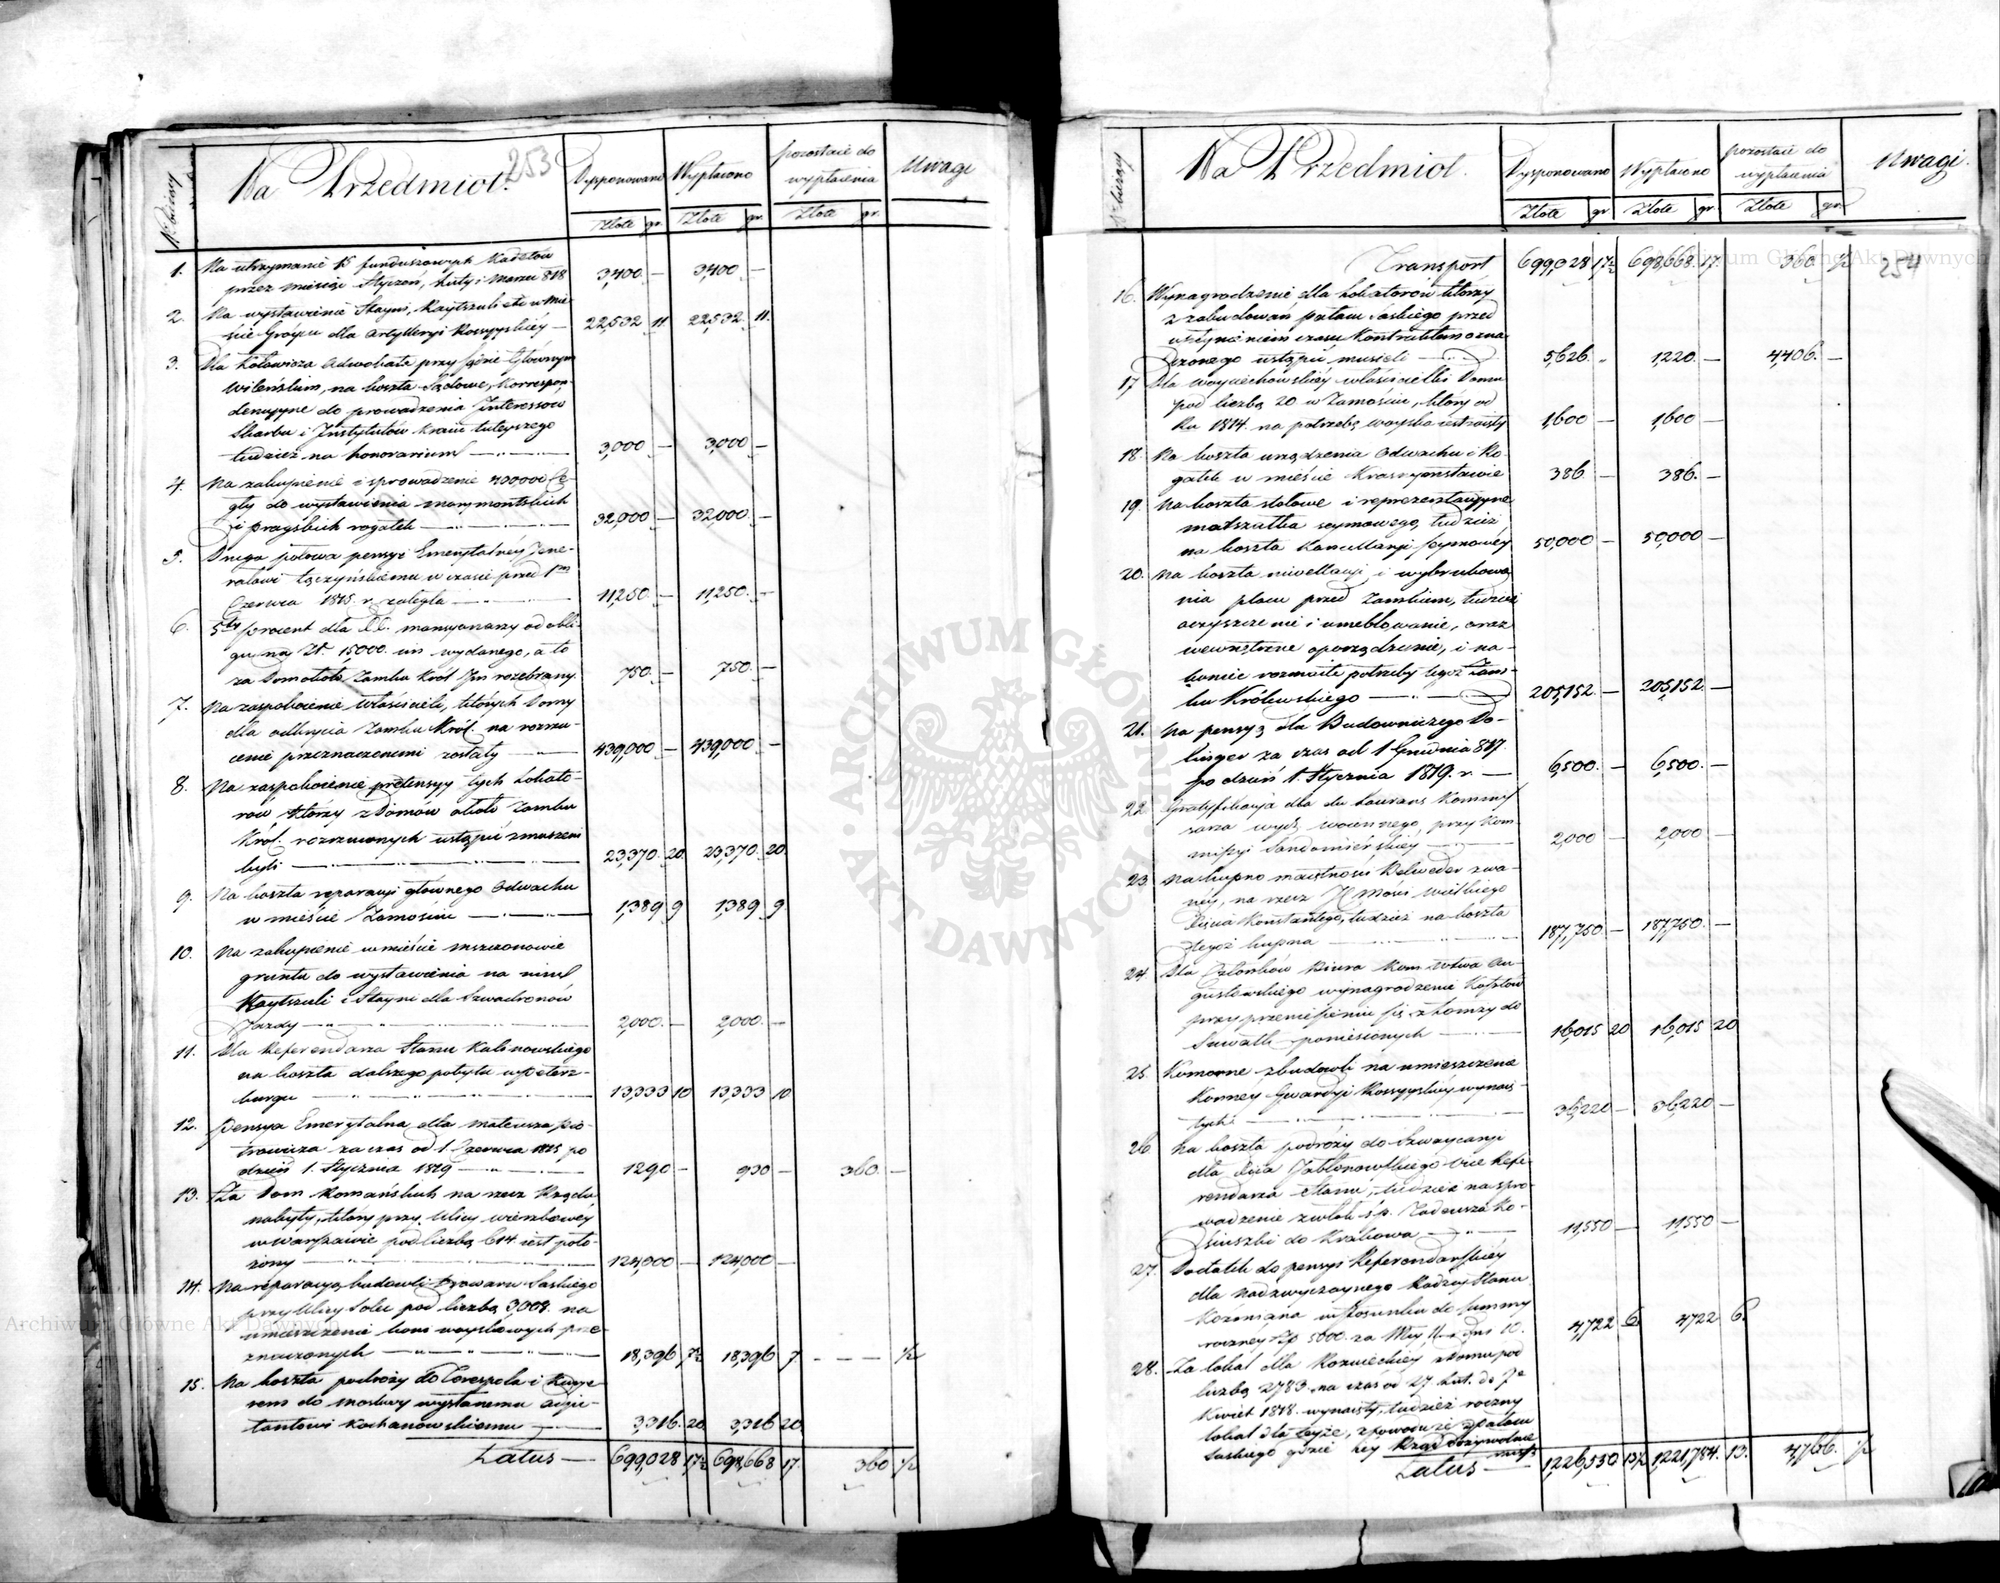 253
Na Przedmiot.
Dysponowano
Wypłacono
pozostaie do
wypłacenia
Uwagi
Złote gr. Złote gr. Złote gr.
1. Na utrzymanie 15 funduszowych Kadetów
przez miesiące Styczeń, Luty i Marzec 818 3,400. — 3,400. —
2. Na wystawienie Stayni, Raytszuli etc w Mie-
ście Gróycu dla Artylleryi Rossyyskiéy — 22,532 11. 22,532. 11.
3. Dla Adwokata przy Sądzie Głównym
Wilenskim, na koszta Sądowe, Korrespon-
dencyyne do prowadzenia Interessow
Skarbu i Instytutów Kraiu tuteyszego
tudzież na honorarium — 3,000 — 3,000 —
4. Na zakupienie i sprowadzenie 400000 Ce-
gły do wystawienia marymontskich
i pragskich rogatek — 32,000 — 32,000 —
5. Druga połowa pensyi Emerytalnéy Jene-
rałowi Łączyńskiemu w czasie przed 1m
Czerwca 1815. r. zaległa — 11,250. — 11,250. —
6. 5ty procent dla XX. mansyonarzy od obli-
gu na Zł. 15000. im wydanego, a to
za Dom około Zamku Król. Im rozebrany. 750. — 750. —
7. Na zaspokoienie Właścicieli, których Domy
dla odkrycia Zamku Król. na rozrzu-
cenie przeznaczonemi zostały — 439,000 — 439,000 —
8. Na zaspokoienie pretensyy tych Lokato-
rów, którzy z Domów około Zamku
Król. rozrzuconych ustąpić zmuszeni
byli — 23,370. 20. 23,370. 20.
9. Na koszta reparacyi głównego Odwachu
w mieście Zamościu — 1,389 9 1,389 9.
10. Na zakupienie w mieście Mszczonowie
gruntu do wystawienia na nim
Raytszuli i Stayni dla Szwadronów
Jazdy — 2,000. — 2,000. —
11. Dla Referendarza Stanu Kalinowskiego
na koszta dalszego pobytu w Peters-
burgu — 13,333 10 13,333 10
12. Pensya Emerytalna dla Mateusza Pio-
trowicza za czas od 1. Czerwca 1815 po
dzień 1. Stycznia 1819 — 1290 — 930 — 360. —
13. Za Dom Romańskich na rzecz Rządu
nabyty, który przy Ulicy wierzbowéy
w Warszawie pod liczbą 614. iest poło-
żony — 124,000 — 124,000 —
14. Na reparacyą budowli Browaru Saskiego
przy Ulicy Solec pod liczbą 3,008. na
umieszczenie koni woyskowych prze-
znaczonych — 18,396 7½ 18,396 7 — — — ½
15. Na koszta podróży do Terespola i Kurye-
rem do Moskwy wysłanemu Adju-
tantowi Kochanowskiemu — 3,316. 20. 3,316 20.
Latus — 699,028 17½ 698,668 17. 360 ½
254
Na Przedmiot.
Dysponowano
Wypłacono
pozostaie do
wypłacenia
Uwagi.
Złote gr Złote gr. Złote gr.
Transport 699,028 17½ 698,668. 17. 360. ½
16. Wynagrodzenie dla Lokatorow którzy
z zabudowań pałacu Saskiego przed
upłynieniem czasu Kontraktem ozna-
czonego ustąpić musieli — 5,626. „ 1,220. — 4,406. —
17. Dla Woyciechowskiéy właścicielki Domu
pod liczbą 20 w Zamościu, który od
Ru 1814. na potrzeby woyska 1,600 — 1,600 —
18. Na koszta urządzenia Odwachu i Ro-
gatek w mieście Krasnymstawie 386. — 386. —
19. Na koszta stołowe i reprezentacyyne
marszałka seymowego, tudzież
na koszta Kancellaryi Seymowéy 50,000 — 50,000 —
20. Na koszta niwellacyi i wybrukowa-
nia placu przed Zamkiem, tudzież
oczyszczenie i umeblowanie, oraz
wewnętrzne oporządzenie, i na-
koniec rozmaite potrzeby tegoż Zam-
ku Królewskiego — 205,152. — 205,152. —
21. Na pensyą dla Budowniczego Do-
linger za czas od 1 Grudnia 817.
po dzień 1. Stycznia 1819. r. — 6,500. — 6,500. —
22. Gratyfikacya dla du Laurans Kommis-
sarza wydz. woiennego przy Kom-
missyi Sandomierskiéy — 2,000 — 2,000 —
23. Na kupno maiętności Belweder zwa-
néy, na rzecz JCMości Wielkiego
Xięcia Konstantego, tudzież na koszta
tegoż kupna — 187,750. — 187,750. —
24. Dla Członków Biura Kom: Wdztwa Au-
gustowskiego wynagrodzenie Kosztów
przy przeniesieniu się z Łomży do
Suwałk poniesionych — 16,015 20 16,015 20
25. Komorne z budowli na umieszczenie
Konnéy Gwardyi Rossyyskiéy wynaię-
tych — 36,220 — 36,220 —
26. Na koszta podróży do Szwaycaryi
dla Xcia Jabłonowskiego Vice Refe-
rendarza Stanu, tudzież na spro-
wadzenie zwłok ś.p. Tadeusza Ko-
ściuszki do Krakowa — 11,550 — 11,550 —
27. Dodatek do pensyi Referendarskiéy
dla nadzwyczaynego Radzcy Stanu
Koźmiana w stosunku do summy
roczney Złp 5000. za Mcy 11. dni 10. 4,722 6. 4722 6.
28. Za lokal dla Roznieckiéy z domu pod
liczbą 2783. na czas od 27. Lut. do 7o
Kwiet 1818. wynaięty, tudzież roczny
lokal dla teyże, z powodu iż z Pałacu
Saskiego gdzie Jey Rząd dożywotnie
Latus — 1,226,550 13½ 1,221,784. 13. 4,766. ½
ARCHIWUM GŁÓWNE AKT DAWNYCH
Archiwum Główne Akt Dawnych
Archiwum Główne Akt Dawnych